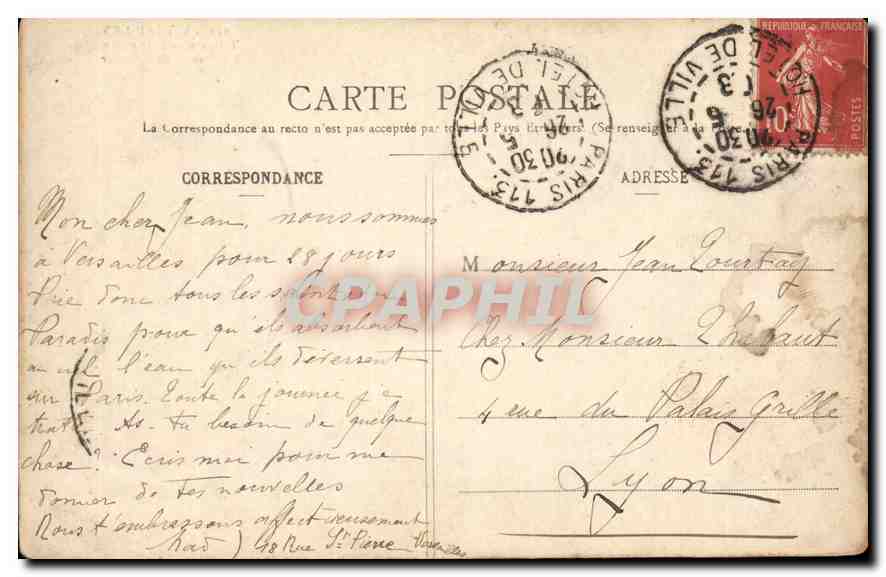 RÉPUBLIQUE FRANÇAISE
10
POSTES
PARIS 113
20 30
26 - 5
HOTEL DE VILLE
PARIS 113
20 30
26 - 5
HOTEL DE VILLE
CARTE POSTALE
La Correspondance au recto n'est pas acceptée par tous les Pays Etrangers. (Se renseigner à la Poste
CORRESPONDANCE
ADRESSE
Mon cher Jean, nous sommes
à Versailles pour 28 jours
Prie donc tous les saints du
Paradis pour qu'ils absorbent
l'eau qu'ils déversent
sur Paris. Toute la journée
As-tu besoin de quelque
chose? Ecris moi pour me
donner de tes nouvelles
Nous t'embrassons affectueusement
18 Rue St Pierre Versailles
Monsieur Jean
Chez Monsieur
4 rue du Palais Grillé
Lyon
CPAPHIL